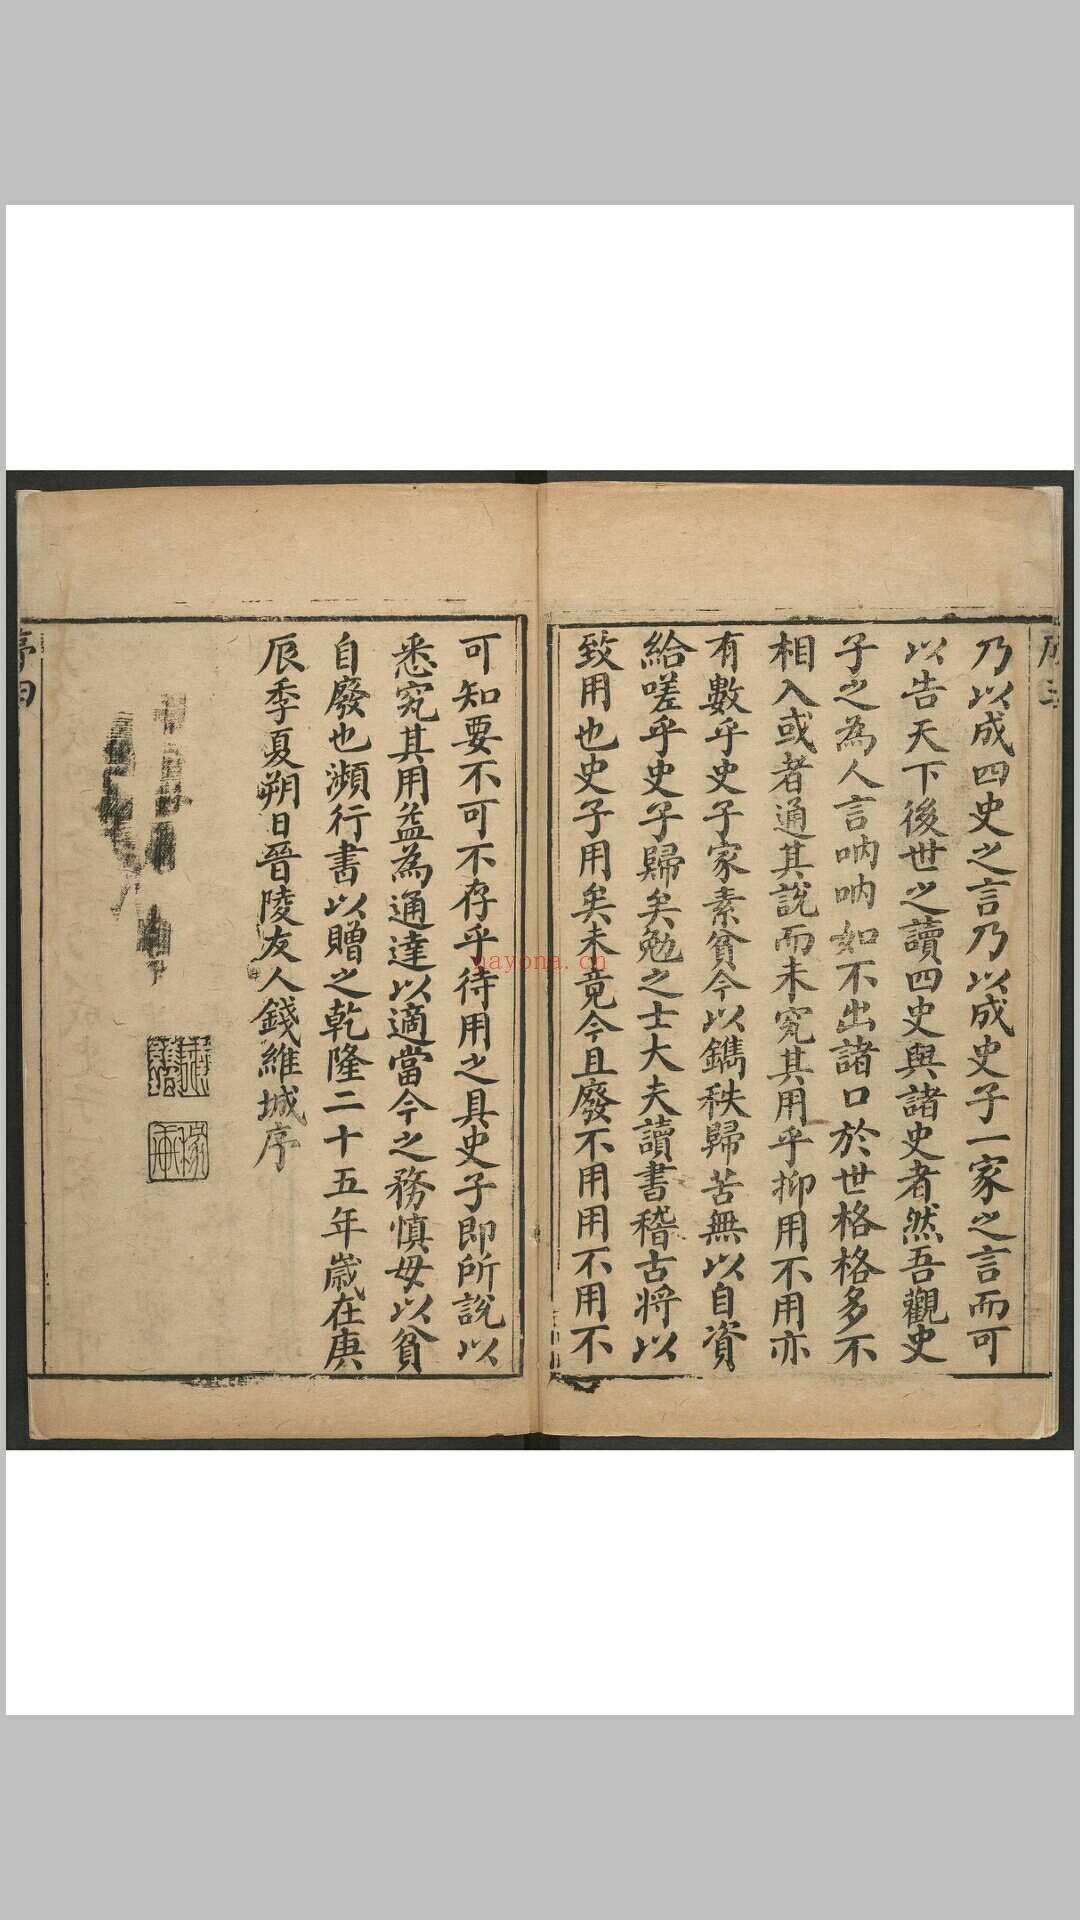 序三
乃以成四史之言乃以成史子一家之言而可
以告天下後世之讀四史與諸史者然吾觀史
子之為人言吶吶如不出諸口於世格格多不
相入或者通其說而未究其用乎抑用不用亦
有數乎史子家素貧今以鐫秩歸苦無以自資
給嗟乎史子歸矣勉之士大夫讀書稽古將以
致用也史子用矣未竟今且廢不用用不用不
可知要不可不存乎待用之具史子即所說以
悉究其用益為通達以適當今之務慎毋以貧
自廢也瀕行書以贈之乾隆二十五年歲在庚
辰季夏朔日晉陵友人錢維城序
nayona.cn